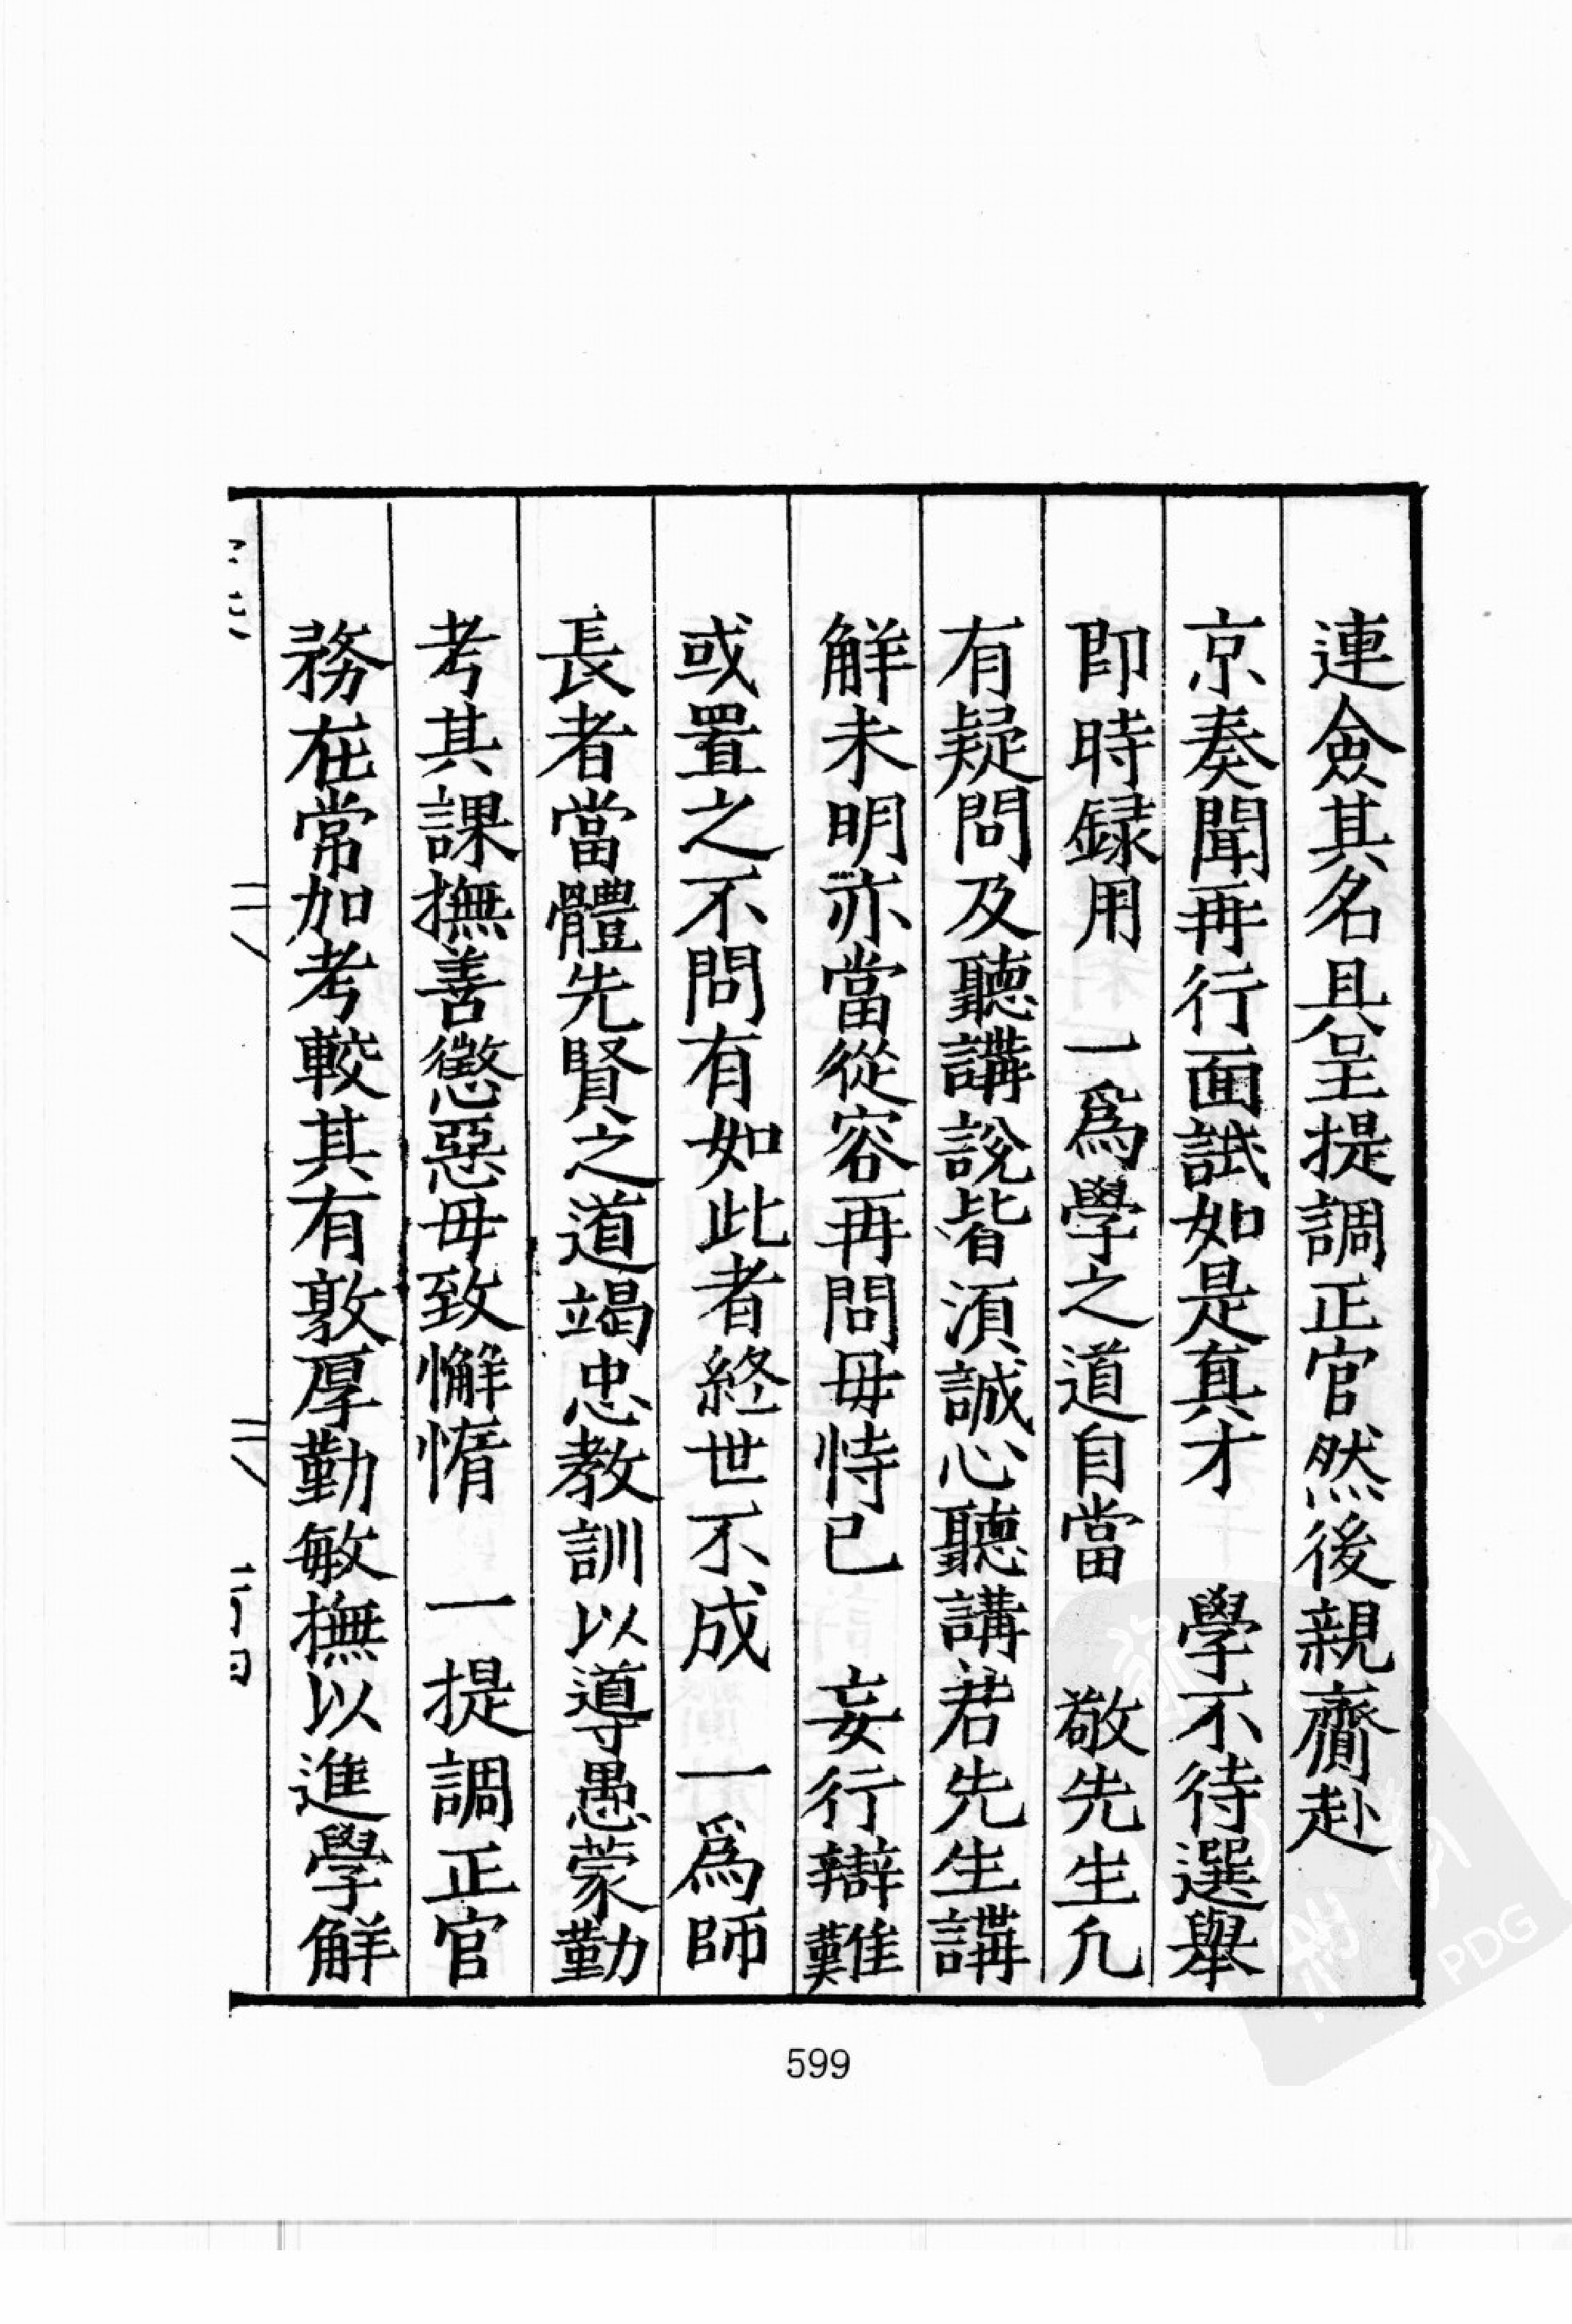 連僉其名具呈提調正官然後親齎赴
京奏聞再行面試如是真才　學不待選舉
即時録用　一爲學之道自當　敬先生凢
有疑問及聽講說皆湏誠心聽講若先生講
解未明亦當從容再問毋恃己　妄行辯難
或置之不問有如此者終世不成　一爲師
長者當體先賢之道竭忠教訓以導愚蒙勤
考其課撫善懲惡毋致懈惰　一提調正官
務在常加考較其有敦厚勤敏撫以進學解
599
PDG